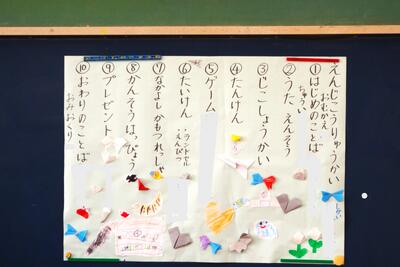 えんじこうりゅうかい
①はじめのことば
おむかえ
ちゅうい
②うた えんそう
③じこしょうかい
④たんけん
⑤ゲーム
⑥たいけん
・ランドセル
・えんぴつ
⑦なかよし かもつれっしゃ
⑧かんそうはっぴょう
⑨プレゼント
⑩おわりのことば
おみおくり